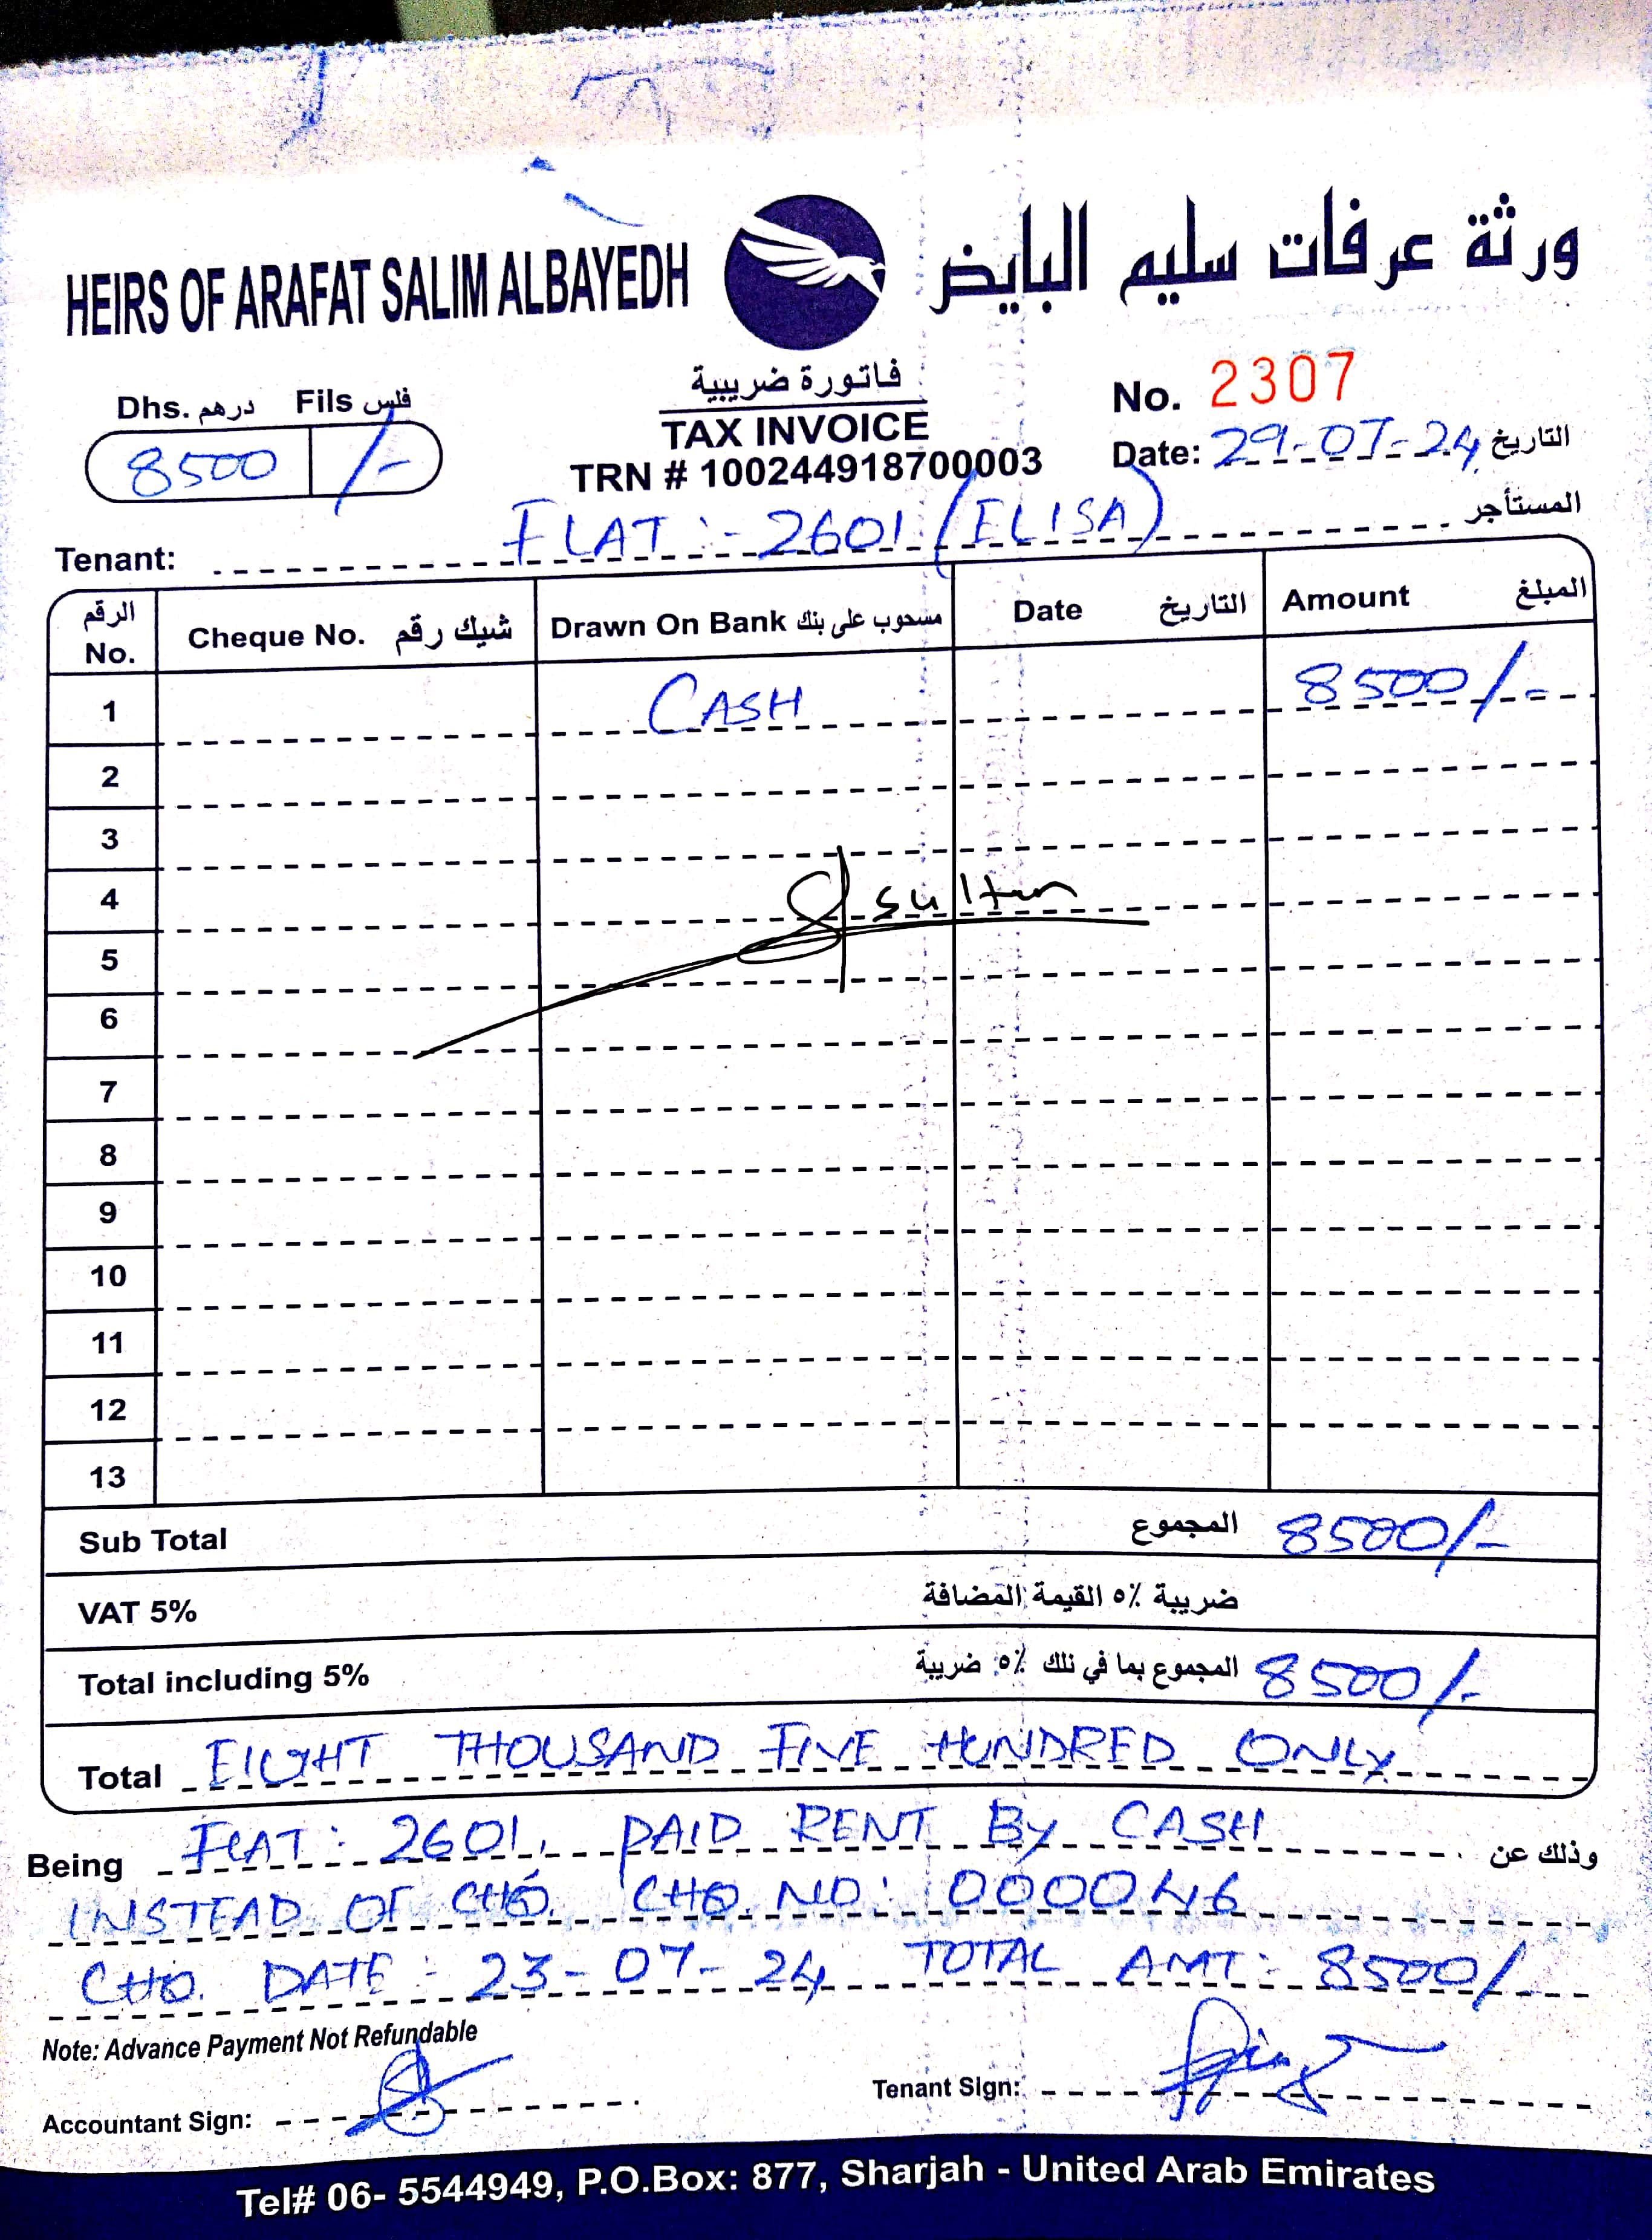 HEIRS OF ARAFAT SALIM ALBAYEDH ورثة عرفات سليم البايض
فاتورة ضريبية
TAX INVOICE
TRN # 100244918700003
Dhs. درهم Fils فلس
8500 /-
No. 2307
Date: 29-07-24 التاريخ
Tenant: FLAT :- 2601 (ELISA) المستأجر
الرقم No. Cheque No. شيك رقم Drawn On Bank مسحوب على بنك Date التاريخ Amount المبلغ
1 CASH 8500/-
2
3
4 sultan
5
6
7
8
9
10
11
12
13
Sub Total المجموع 8500/-
VAT 5% ضريبة ٥٪ القيمة المضافة
Total including 5% المجموع بما في ذلك ٥٪ ضريبة 8500/-
Total EIGHT THOUSAND FIVE HUNDRED ONLY
Being FLAT: 2601, PAID RENT By CASH وذلك عن
INSTEAD OF CHQ. CHQ. NO: 000046
CHQ. DATE :- 23-07-24 TOTAL AMT: 8500/-
Note: Advance Payment Not Refundable
Accountant Sign: Tenant Sign:
Tel# 06- 5544949, P.O.Box: 877, Sharjah - United Arab Emirates